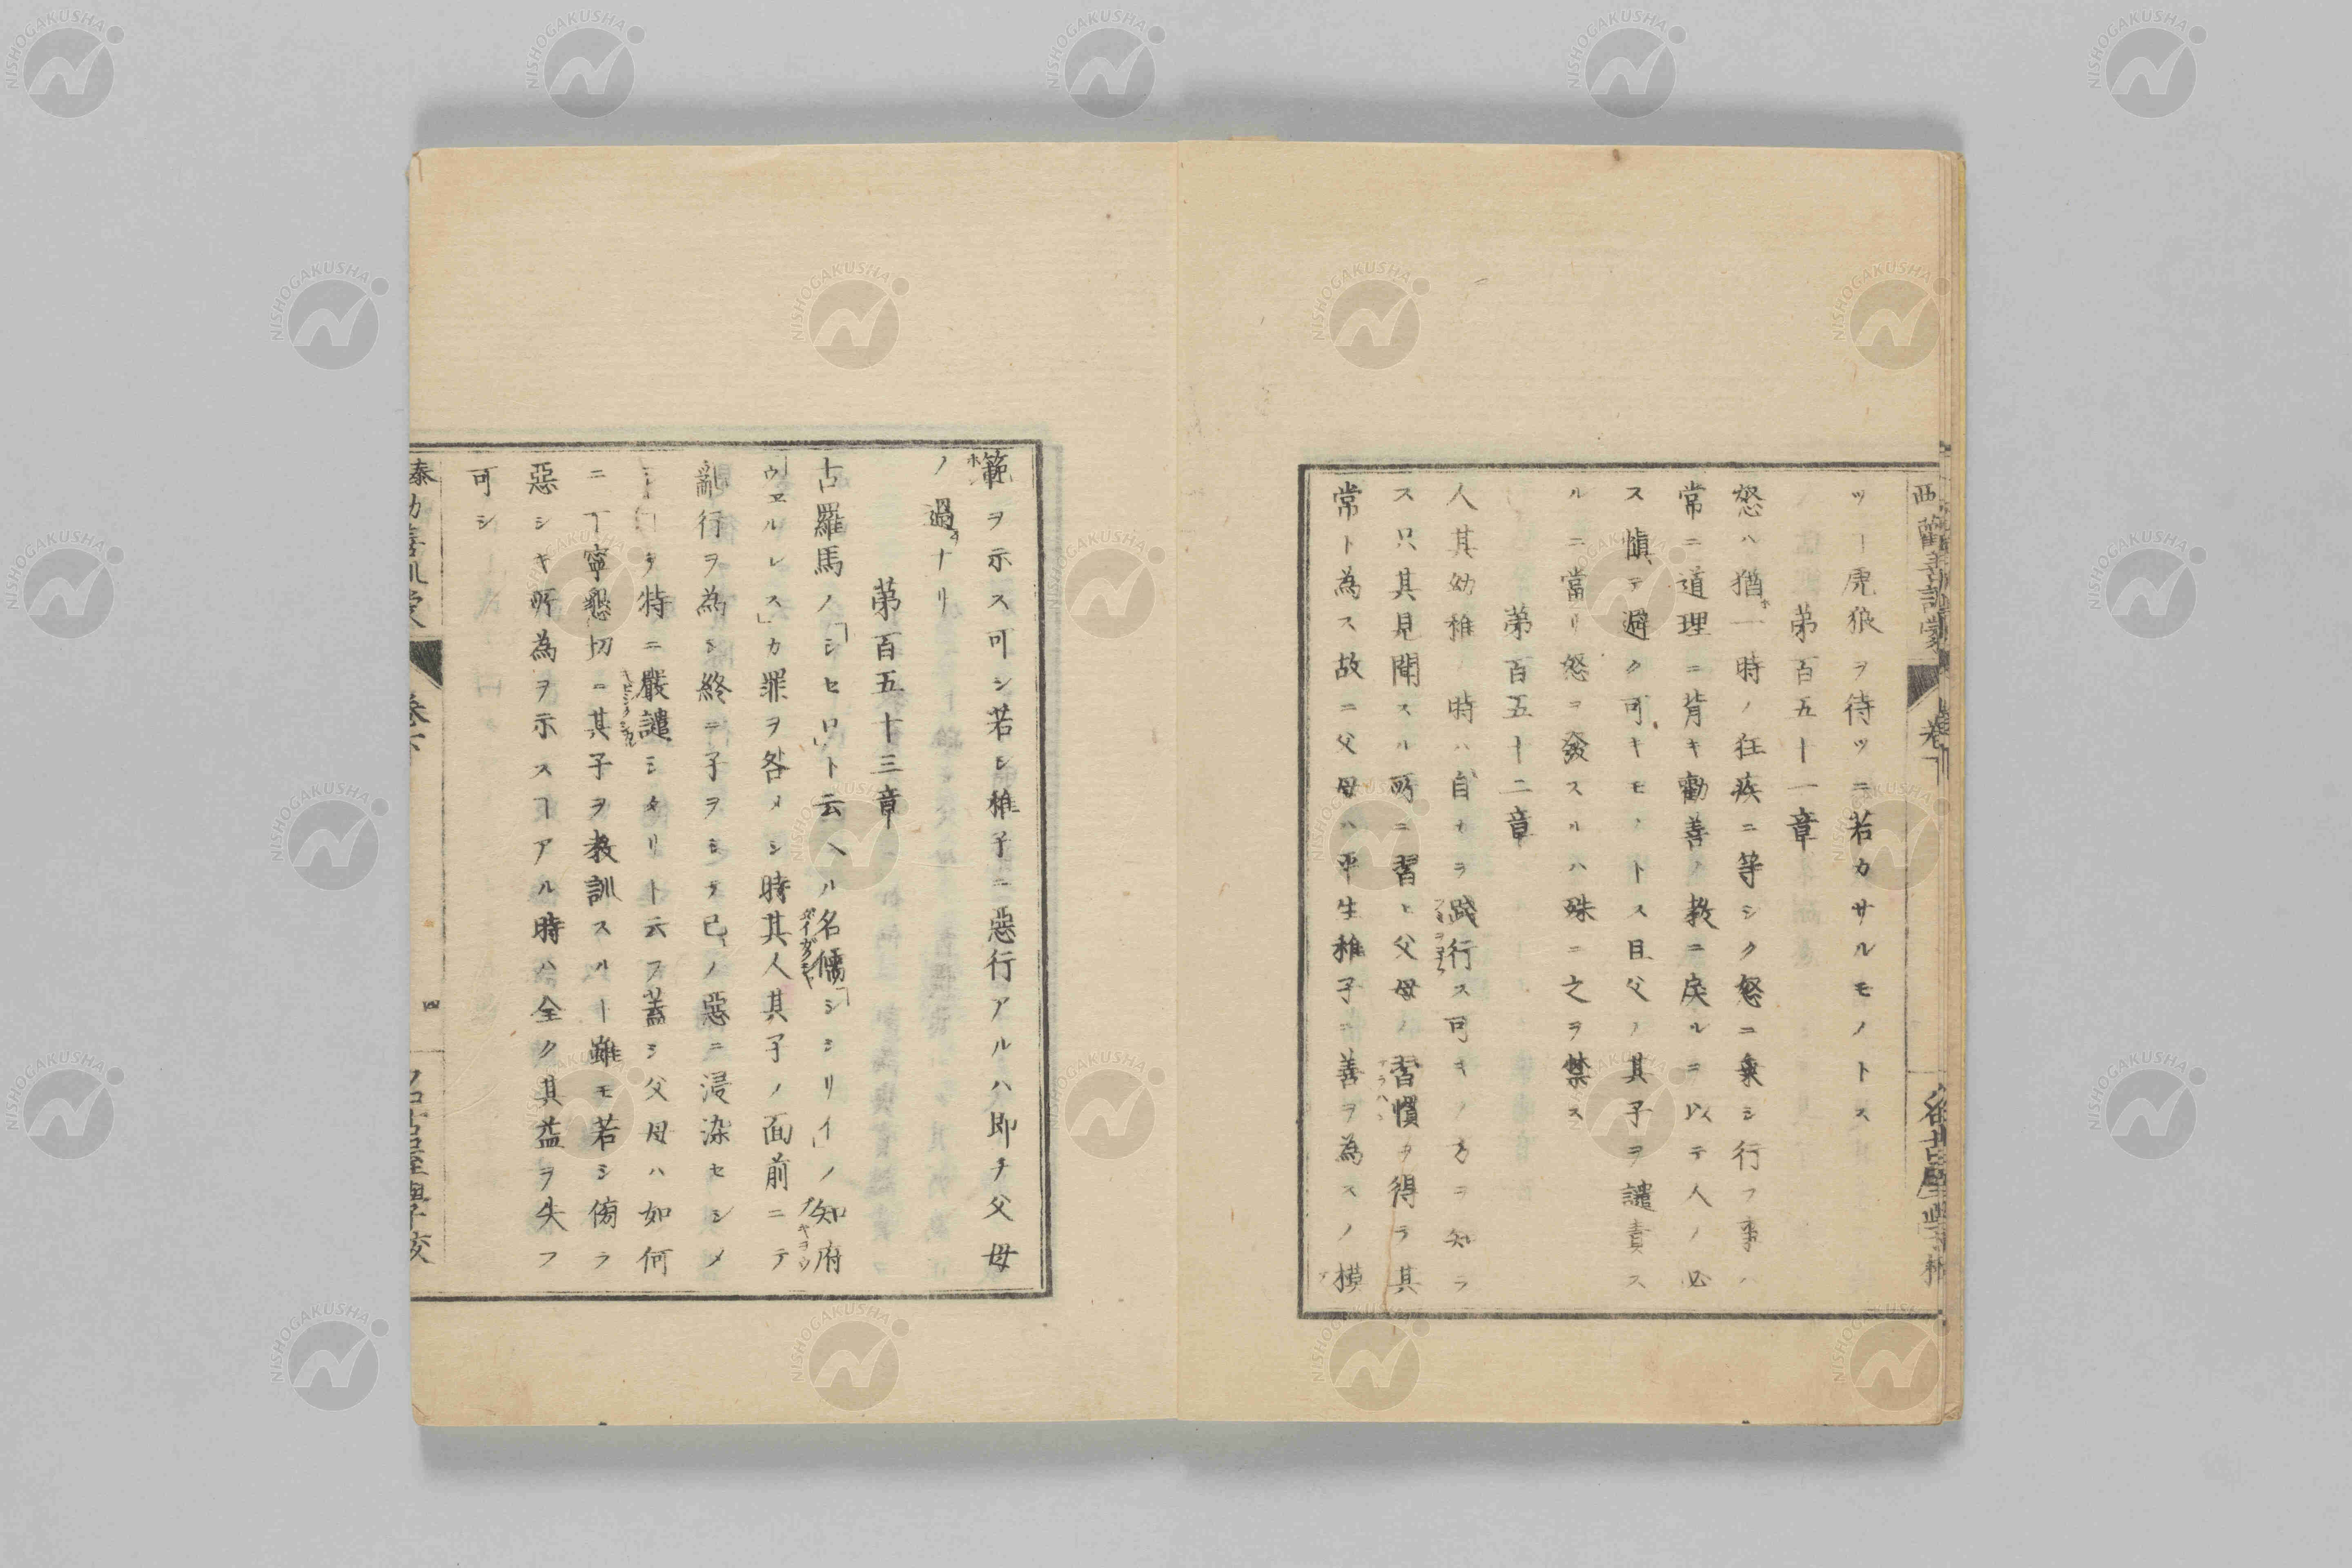 ツヿ虎狼ヲ待ツニ若カサルモノトス
第百五十一章
怒ハ猶一時ノ狂疾ニ等シク怒ニ乗シ行フ事ハ
常ニ道理ニ背キ勸善ノ教ニ戻ルヿニ以テ人ノ必
ス愼テ避ク可キモノトス且父ノ其子ヲ譴責ス
ルニ當リ怒ヲ發スルハ殊ニ之ヲ禁ス
第百五十二章
人其幼稚ノ時ハ自ナラ踐行ス可キノ方ヲ知ラ
ス只其見聞スル所ニ習ヒ父母ノ習慣ヲ得ラ其
常ト為ス故ニ父母ハ平生稚子ニ善ヲ為スノ模
範ヲ示ス可シ若シ稚子ニ惡行アルハ即チ父母
ノ過ナリ
第百五十三章
古羅馬ノ「シセロ」ト云ヘル名儒「シシリイ」ノ知府
「ウヱルレス」カ罪ヲ咎メシ時其人其子ノ面前ニテ
亂行ヲ為シ終ニ子ヲシテ已ノ惡ニ浸染セシメ
シヿヲ特ニ嚴譴シタリト云フ蓋シ父母ハ如何
ニ丁寧懇切ニ其子ヲ教訓スルト雖モ若シ傍ラ
惡シキ所為ヲ示スヿアル時ハ全ク其益ヲ失フ
可シ
卷下
四
名古屋學校